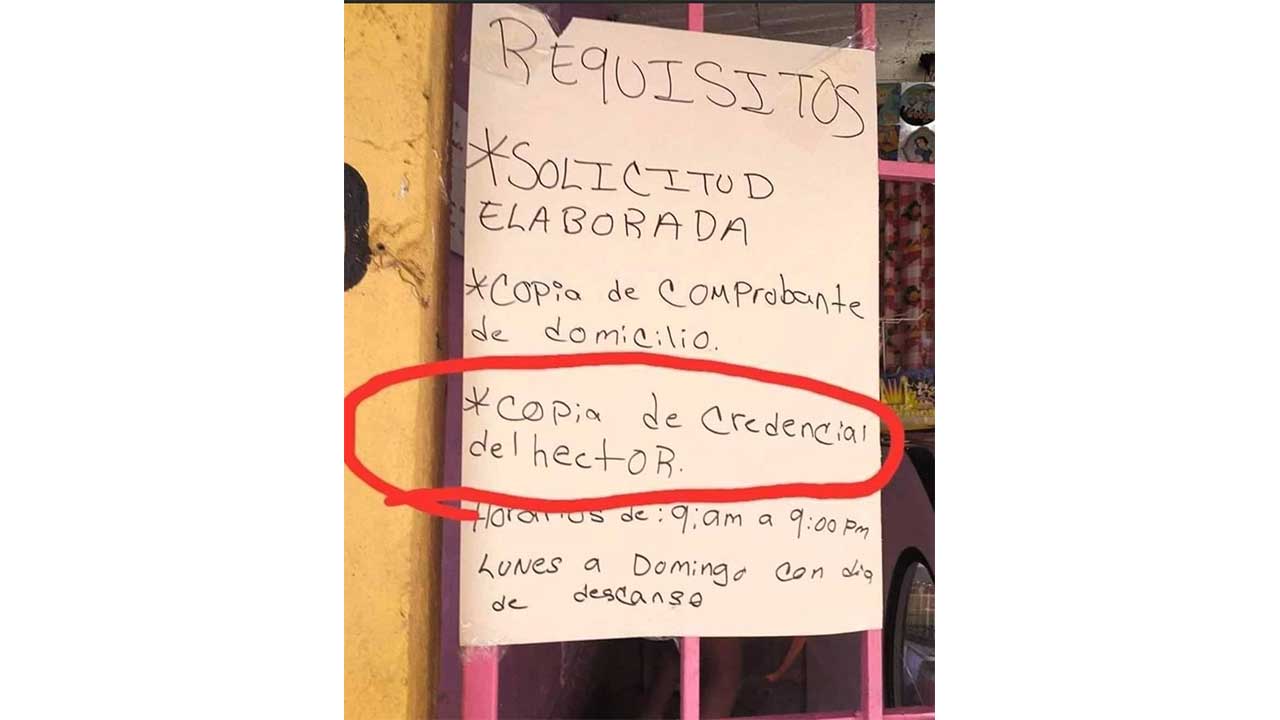 REQUISITOS
*SOLICITUD
ELABORADA
*Copia de COMprobante
de domicilio.
*Copia de Credencial
del hectOR.
Horarios de: 9:am a 9:00pm
LUNES a Domingo con dia
de descanso